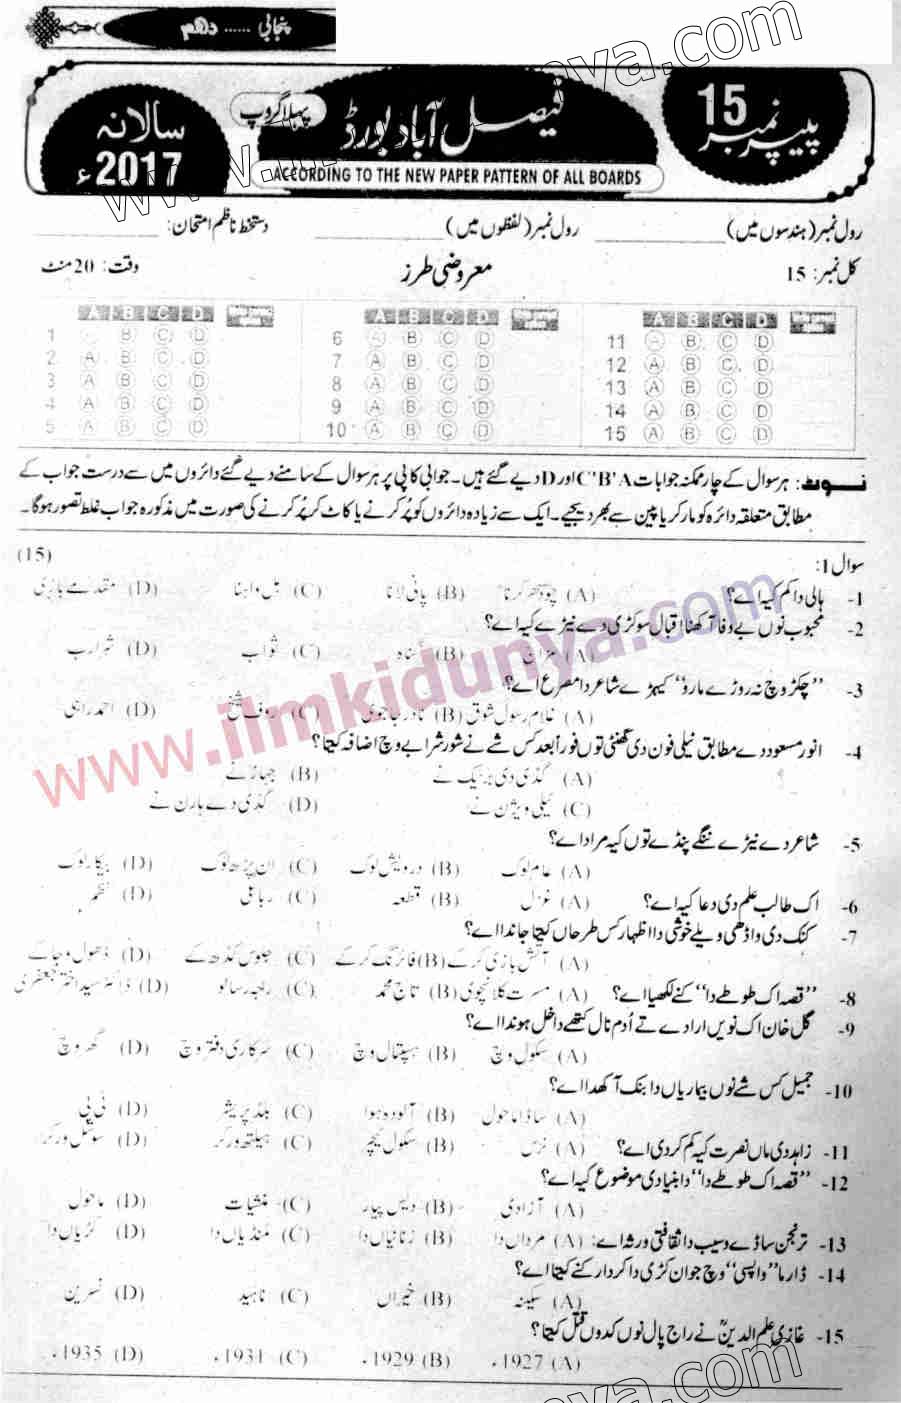 پنجابی ...... دہم
سالانہ 2017ء
پہلا گروپ
فیصل آباد بورڈ
ACCORDING TO THE NEW PAPER PATTERN OF ALL BOARDS
پیپر نمبر 15
رول نمبر (ہندسوں میں) ____________ رول نمبر (لفظوں میں) ____________ دستخط ناظم امتحان: ____________
کل نمبر: 15 معروضی طرز وقت: 20 منٹ
A B C D A B C D A B C D
1 A B C D 6 A B C D 11 A B C D
2 A B C D 7 A B C D 12 A B C D
3 A B C D 8 A B C D 13 A B C D
4 A B C D 9 A B C D 14 A B C D
5 A B C D 10 A B C D 15 A B C D
نوٹ: ہر سوال کے چار ممکنہ جوابات C'B'A اور D دیے گئے ہیں۔ جوابی کاپی پر ہر سوال کے سامنے دیے گئے دائروں میں سے درست جواب کے
مطابق متعلقہ دائرہ کو مارکر یا پین سے بھر دیجیے۔ ایک سے زیادہ دائروں کو پُر کرنے یا کاٹ کر پُر کرنے کی صورت میں مذکورہ جواب غلط تصور ہوگا۔
سوال 1: (15)
1- ہالی دا کم کیہ اے؟ (A) چودھر کرنا (B) پانی لانا (C) ہل واہنا (D) مقدمے بازی
2- محبوب نوں بے وفا آکھنا اقبال سوکڑی دے نیڑے کیہ اے؟
(A) (B) گناہ (C) ثواب (D) شرارب
3- "چکڑ وچ نہ روڑے مارو" کیہڑے شاعر دا مصرع اے؟
(A) غلام رسول شوق (B) نادر جاجوی (C) رؤف شیخ (D) احمد راہی
4- انور مسعود دے مطابق ٹیلی فون دی گھنٹی توں فوراً بعد کس شے نے شور شرابے وچ اضافہ کیتا؟
(A) گڈی دی بریک نے (B) جہاز نے
(C) ٹیلی ویژن نے (D) گڈی دے ہارن نے
5- شاعر دے نیڑے ننگے پنڈے توں کیہ مراد اے؟
(A) عام لوک (B) درویش لوک (C) ان پڑھ لوک (D) بیکار لوک
6- اک طالب علم دی دعا کیہ اے؟ (A) غزل (B) قطعہ (C) رباعی (D) نظم
7- کنک دی واڈھی ویلے خوشی دا اظہار کس طرحاں کیتا جاندا اے؟
(A) آتش بازی کرکے (B) فائرنگ کرکے (C) جلوس کڈھ کے (D) ڈھول وجا کے
8- "قصہ اک طوطے دا" کنے لکھیا اے؟ (A) مسرت کلانچوی (B) تاج محمد (C) راجہ رسالو (D) ڈاکٹر سید اختر جعفری
9- گل خان اک نویں ارادے تے اُدم نال کتھے داخل ہوندا اے؟
(A) سکول وچ (B) ہسپتال وچ (C) سرکاری دفتر وچ (D) گھر وچ
10- جمیل کس شے نوں بیماریاں دا بنک آکھدا اے؟
(A) ساڈا ماحول (B) آلودہ ہوا (C) بلڈ پریشر (D) ٹی بی
11- زاہد دی ماں نصرت کیہ کم کردی اے؟ (A) نرس (B) سکول ٹیچر (C) ہیلتھ ورکر (D) سوشل ورکر
12- "قصہ اک طوطے دا" دا بنیادی موضوع کیہ اے؟
(A) آزادی (B) دیس پیار (C) منشیات (D) ماحول
13- ترنجن ساڈے وسیب دا ثقافتی ورثہ اے: (A) مرداں دا (B) زنانیاں دا (C) منڈیاں دا (D) کڑیاں دا
14- ڈارما "واپسی" وچ جوان کڑی دا کردار کنے کیتا اے؟
(A) سکینہ (B) خیراں (C) ناہید (D) نسرین
15- غازی علم الدینؒ نے راج پال نوں کدوں قتل کیتا؟
(A) 1927ء (B) 1929ء (C) 1931ء (D) 1935ء
www.ilmkidunya.com